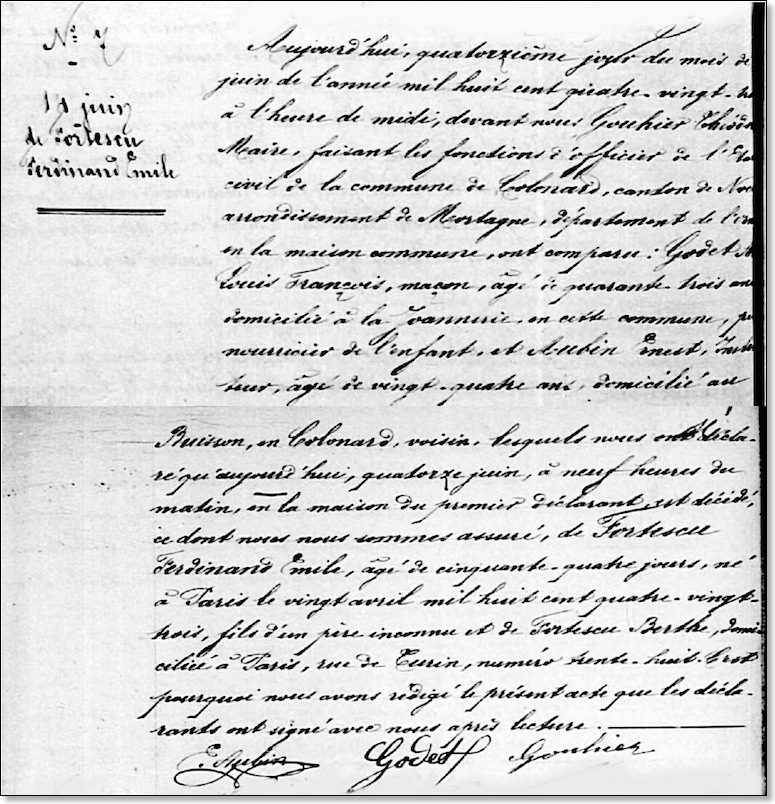 N° 7
14 juin
de Fortescu
Ferdinand Emile
Aujourd'hui, quatorzième jour du mois de
juin de l'année mil huit cent quatre-vingt-
à l'heure de midi, devant nous Gouhier
Maire, faisant les fonctions d'officier de l'
civil de la commune de Colonard, canton de
arrondissement de Mortagne, département de l'
en la maison commune, ont comparu : Godet
Louis François, maçon, âgé de quarante-trois ans
domicilié à la Joannerie, en cette commune,
nourricier de l'enfant, et Aubin Ernest,
teur, âgé de vingt-quatre ans, domicilié au
Buisson, en Colonard, voisin, lesquels nous ont décla-
ré qu'aujourd'hui, quatorze juin, à neuf heures du
matin, en la maison du premier déclarant, est décédé,
ce dont nous nous sommes assuré, de Fortescu
Ferdinand Emile, âgé de cinquante-quatre jours, né
à Paris le vingt avril mil huit cent quatre-vingt-
trois, fils d'un père inconnu et de Fortescu Berthe, domi-
cilié à Paris, rue de Turin, numéro trente-huit. C'est
pourquoi nous avons rédigé le présent acte que les décla-
rants ont signé avec nous après lecture.
E. Aubin Godet Gouhier